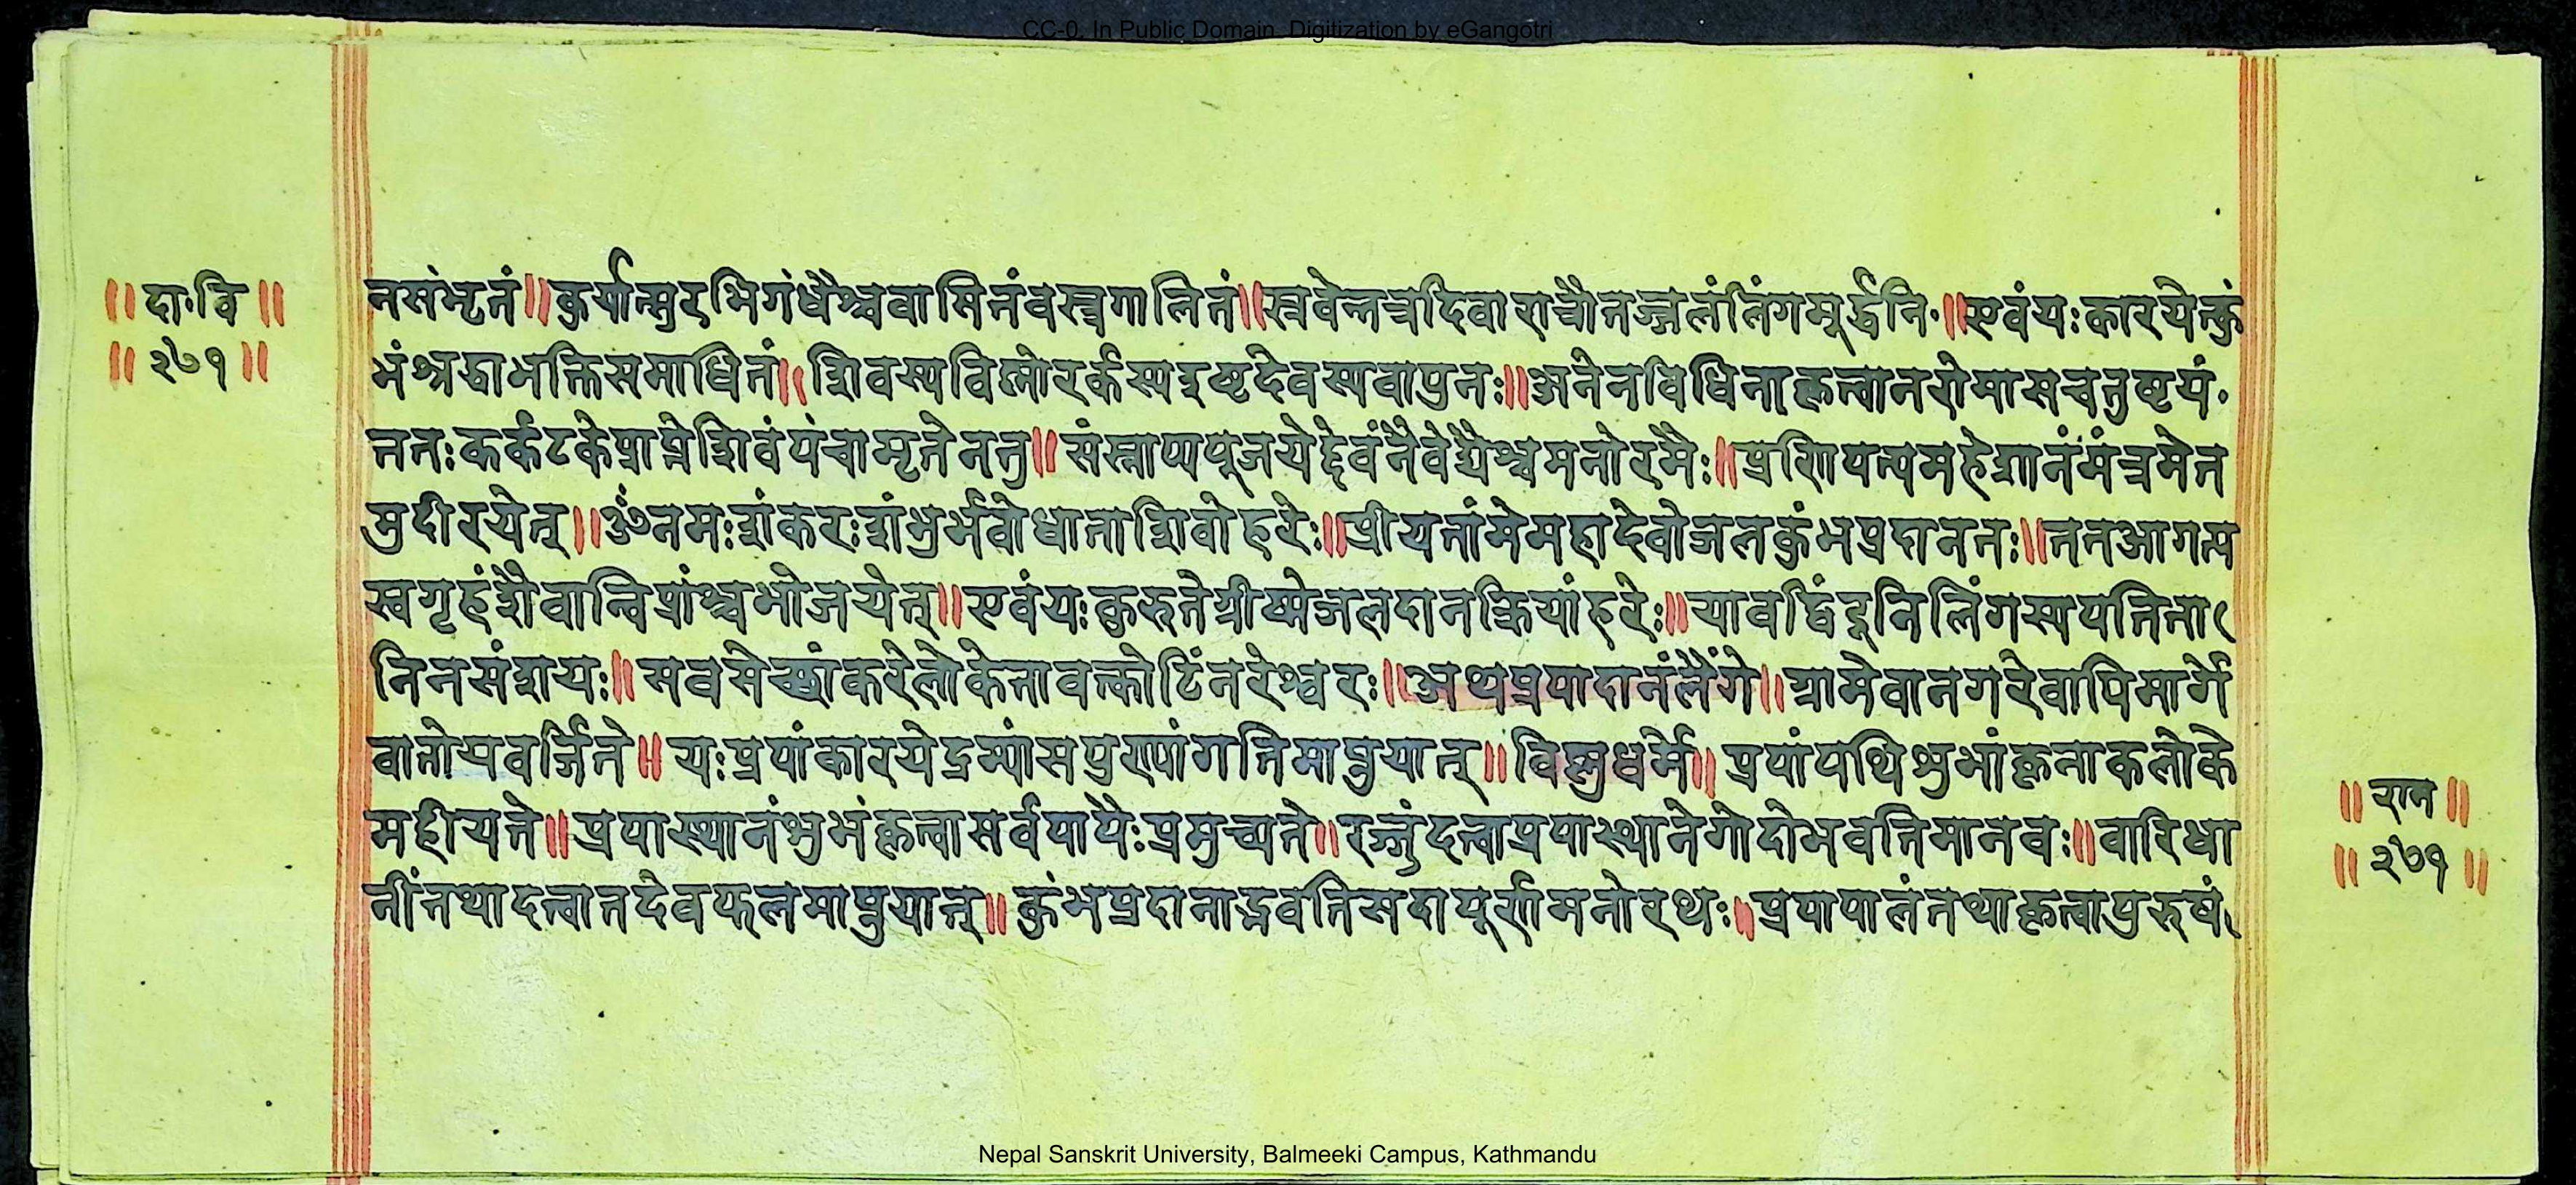 CC-0. In Public Domain. Digitization by eGangotri
॥ दा॰वि ॥
॥ २७१ ॥
नसंभृतं॥कुर्यात्सुरभिगंधैश्चवासितंवस्त्रगालितं॥स्रवेत्तत्रदिवारात्रौतज्जलंलिंगमूर्द्धनि॰॥एवंयःकारयेत्कुं
भंश्रद्धाभक्तिसमाधितं॥शिवस्यविष्णोरर्कस्यइष्टदेवस्यवापुनः॥अनेनविधिनाकृत्वानरोमासचतुष्टयं॰
ततःकर्कटकेप्राप्तेशिवंपंचामृतेनतु॥संस्नाप्यपूजयेद्देवंनैवेद्यैश्चमनोरमैः॥प्रणिपत्यमहेशानंमंत्रमेत
मुदीरयेत्॥ॐनमःशंकरःशंभुर्भवोधाताशिवोहरेः॥प्रीयतांमेमहादेवोजलकुंभप्रदानतः॥ततआगत्य
स्वगृहंशैवान्विप्रांश्चभोजयेत्॥एवंयःकुरुतेग्रीष्मेजलदानक्रियांहरेः॥यावद्विंदूनिलिंगस्यपतिता
निनसंशयः॥सवसेच्छांकरेलोकेतावत्कोटिंनरेश्वरः॥अथप्रपादानंलैंगे॥ग्रामेवानगरेवापिमार्गे
वातोयवर्जिते॥यःप्रपांकारयेद्रम्यांसपुण्यांगतिमाप्नुयात्॥विष्णुधर्मे॥प्रपांपथिशुभांकृत्नाकलोके
महीयते॥प्रपास्थानंशुभंकृत्वासर्वपापैःप्रमुच्यते॥रज्जुंदत्वाप्रपास्थानेगोदोभवतिमानवः॥वारिधा
नींतथादत्वातदेवफलमाप्नुयात्॥कुंभप्रदानाद्भवतिसदापूर्णमनोरथः॥प्रपापालंतथाकृत्वापुरुषं
॥ राम ॥
॥ २७१ ॥
Nepal Sanskrit University, Balmeeki Campus, Kathmandu